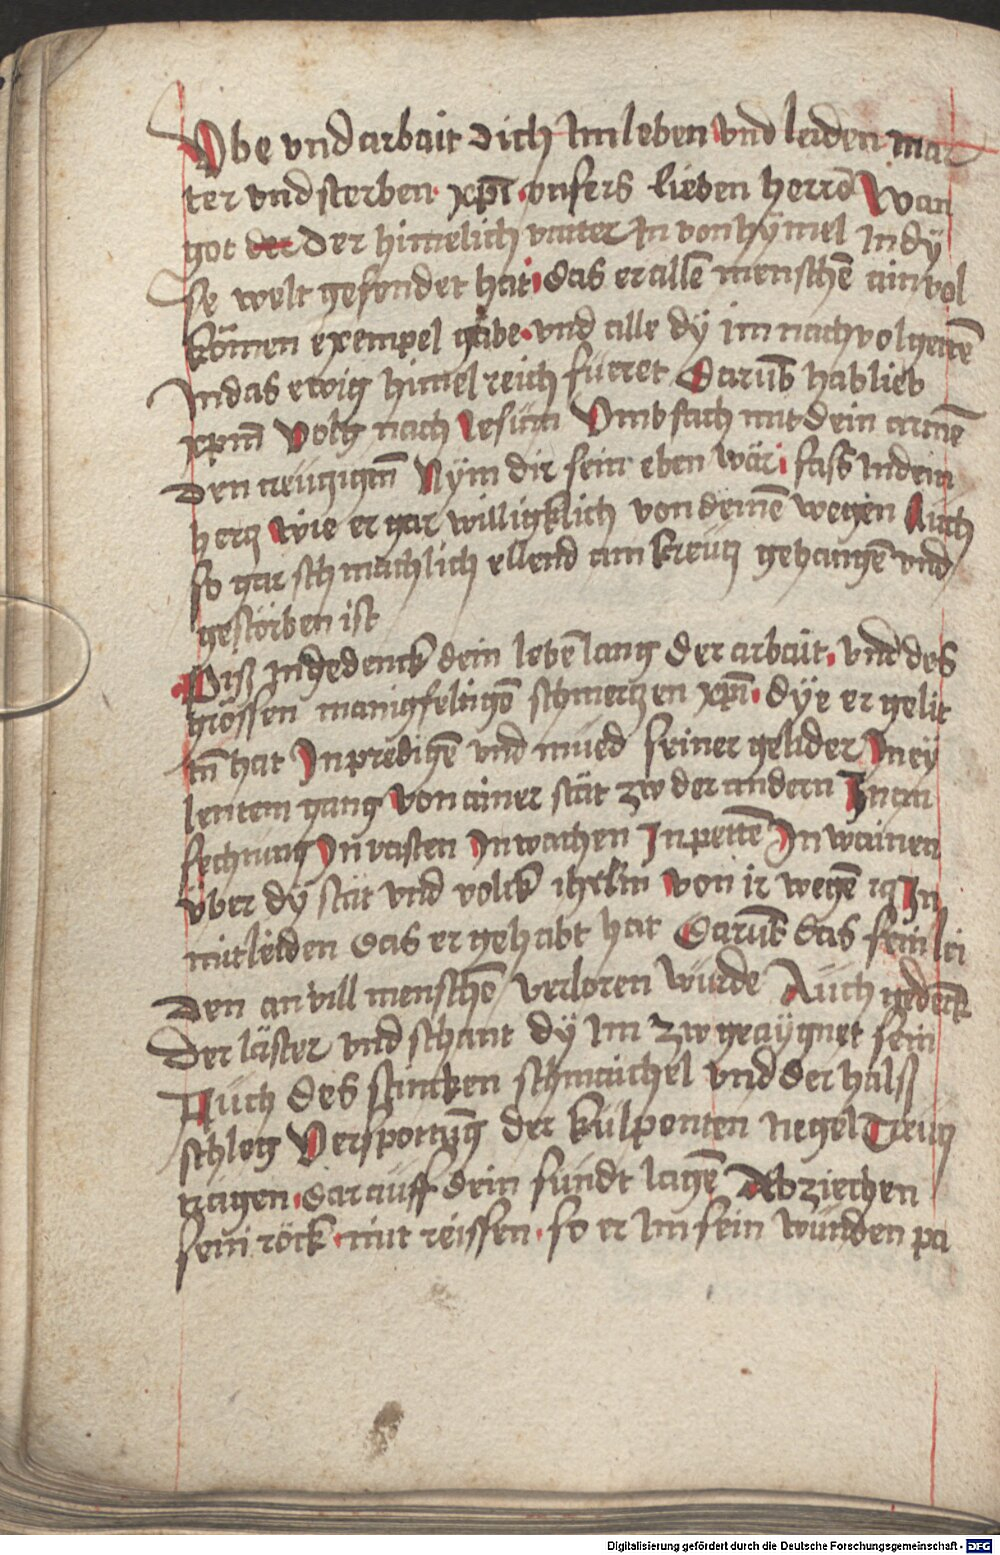 Vbe vnd arbait dich Im leben vnd leiden mar
ter vnd sterben xp̄i vnsers lieben herrē Wan
got der der himelich vatter In von hÿmel In dÿ
se welt gesendet hat das er allē menschē ain vol
kōmen exempel gäbe vnd alle dÿ im nachvolgetē
In das ewig himel reich fueret Darūb hab lieb
xpm̄ Volg nach Iesum Vmbfach mit dein armē
den creützigtn̄ Nÿm dir sein eben war fass In dein
hercz Wie er gar williglich von deinē wegen Auch
so gar schmachlich ellend am kreücz gehangē vnd
gestorben ist
Biss Ingedenck dein lebēlang der arbait vnd des
grossen manigfeltigē schmerczen xp̄i dÿe er gelit
tn̄ hat In predigē vnd mued seiner gelider In eÿ
lentem gang Von ainer stat zw der andern In an
fechtung In vasten In wachen In petē In wainen
vber dÿ stat vnd volck ihrlm̄ von ir wegē In
mitleiden das er gehabt hat Darūb das sein lei
den an vill menschē verloren wurde Auch gedenck
der läster vnd schant dÿ Im zw geaÿgnet sein
Auch des stincken schmaichel vnd der halss
schleg Verspottūg der külpenten negel Creücz
tragen darauff dein sündt lagē Abziechen
sein röck mit reissen so er Im sein wunden pa
Digitalisierung gefördert durch die Deutsche Forschungsgemeinschaft - DFG